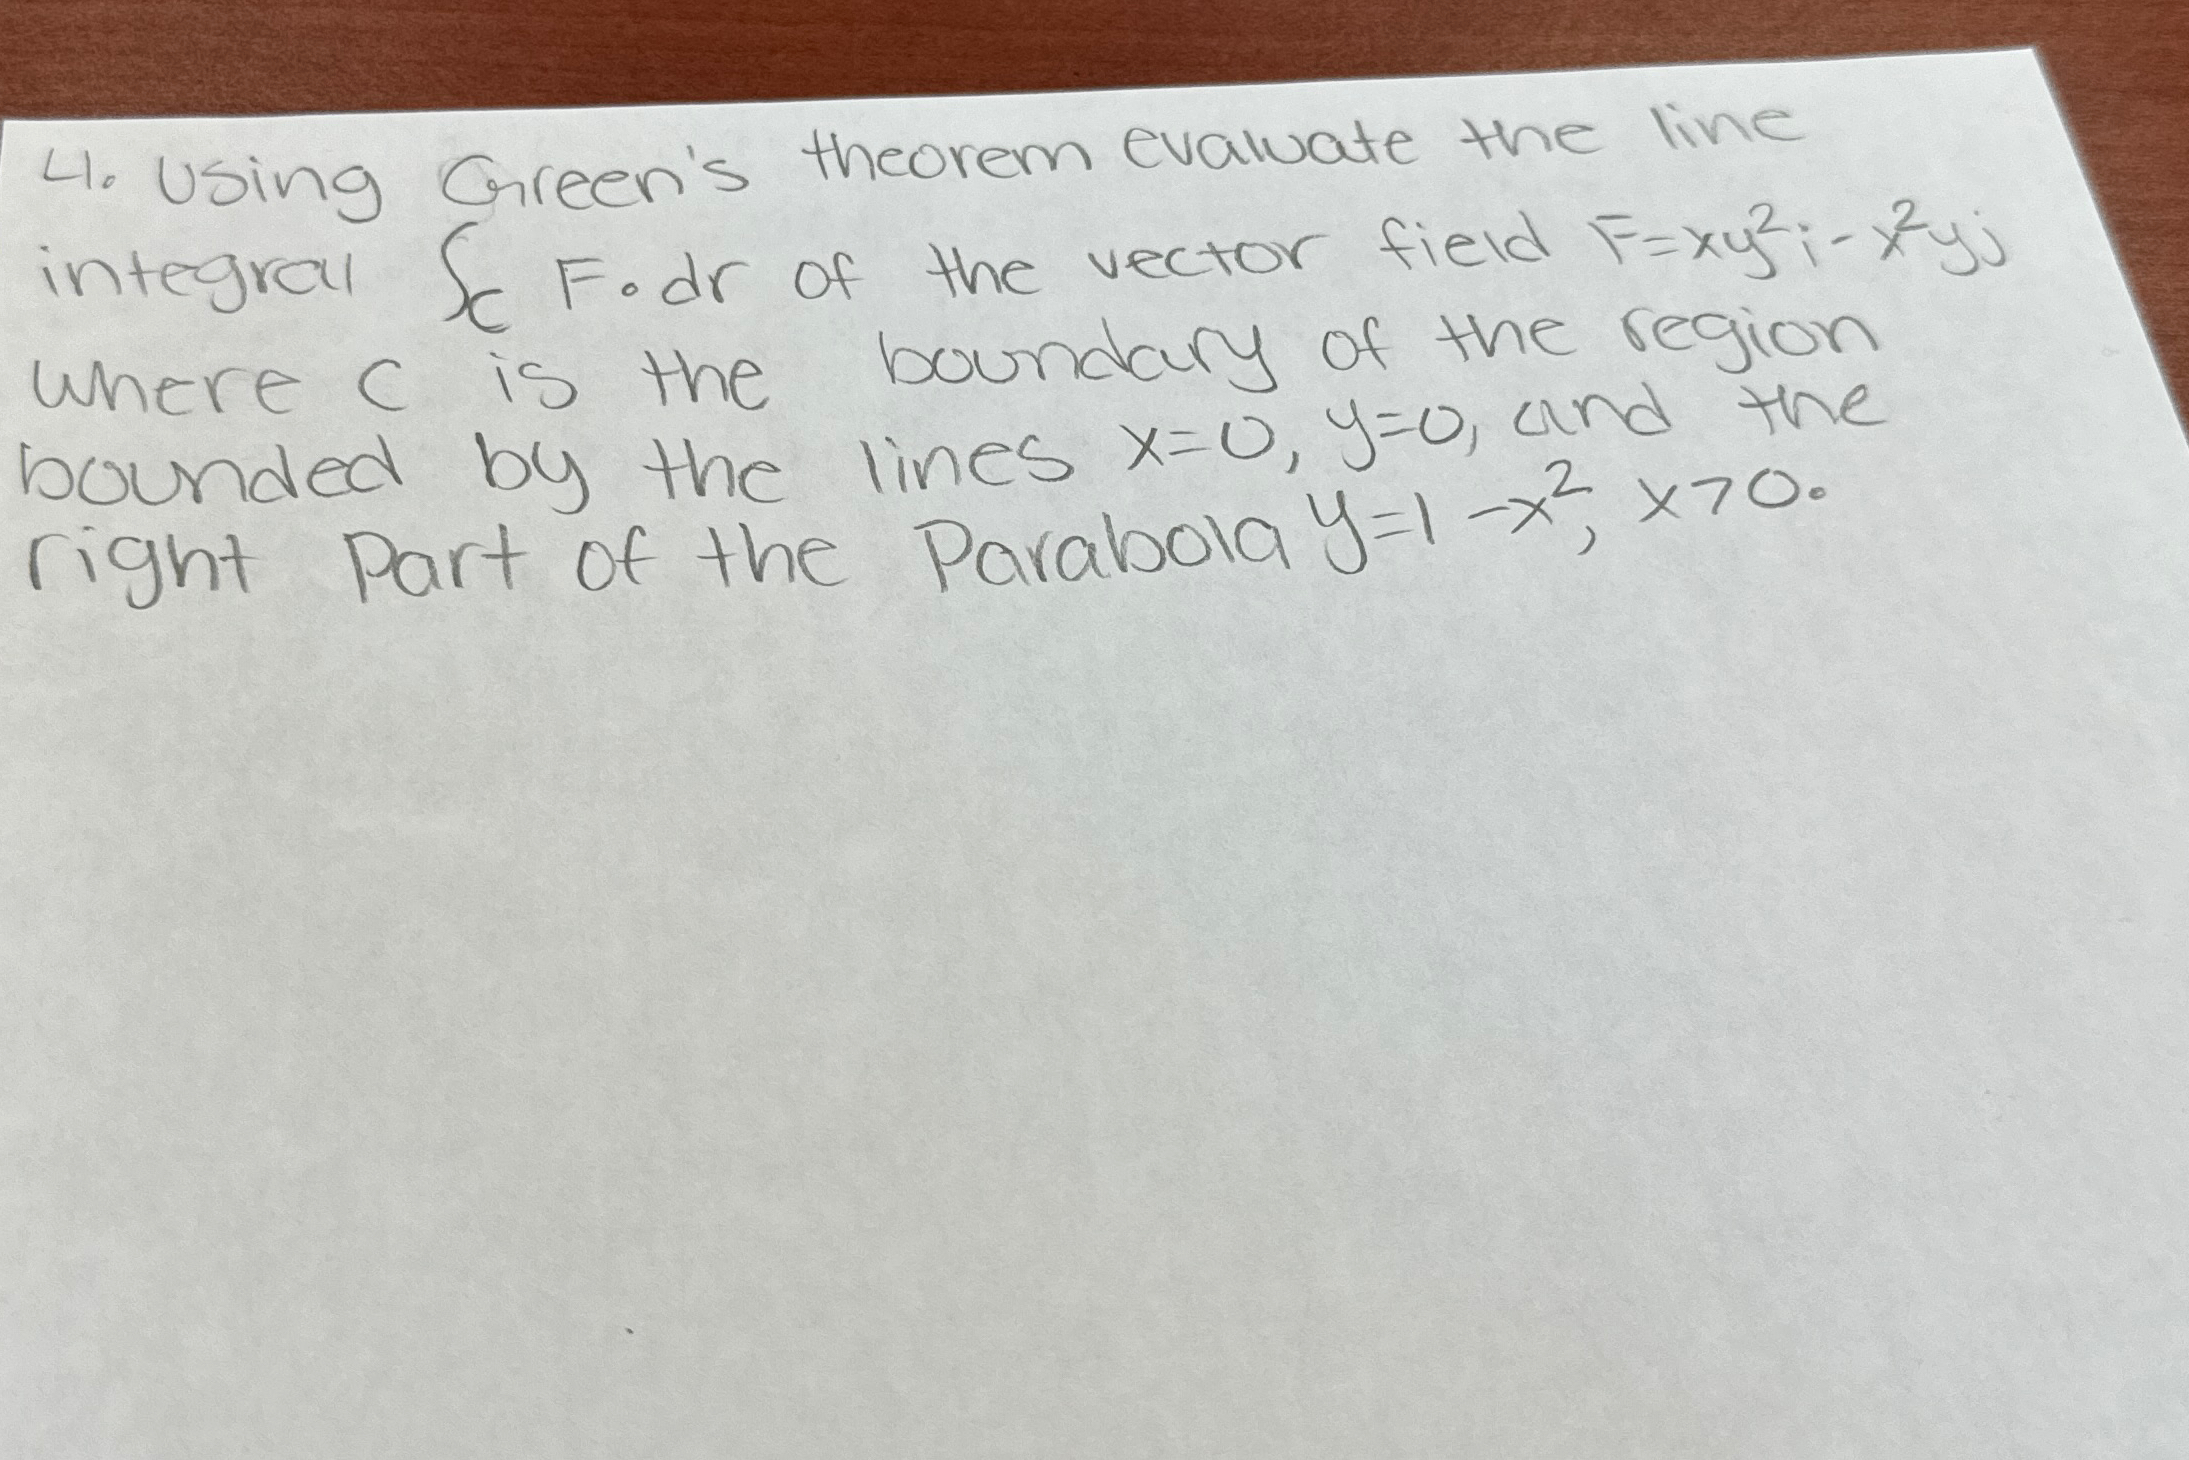 4. Using Green's theorem evaluate the line
integral ∫c F·dr of the vector field F=xy²i-x²yj
where C is the boundary of the region
bounded by the lines x=0, y=0, and the
right Part of the Parabola y=1-x², x>0.